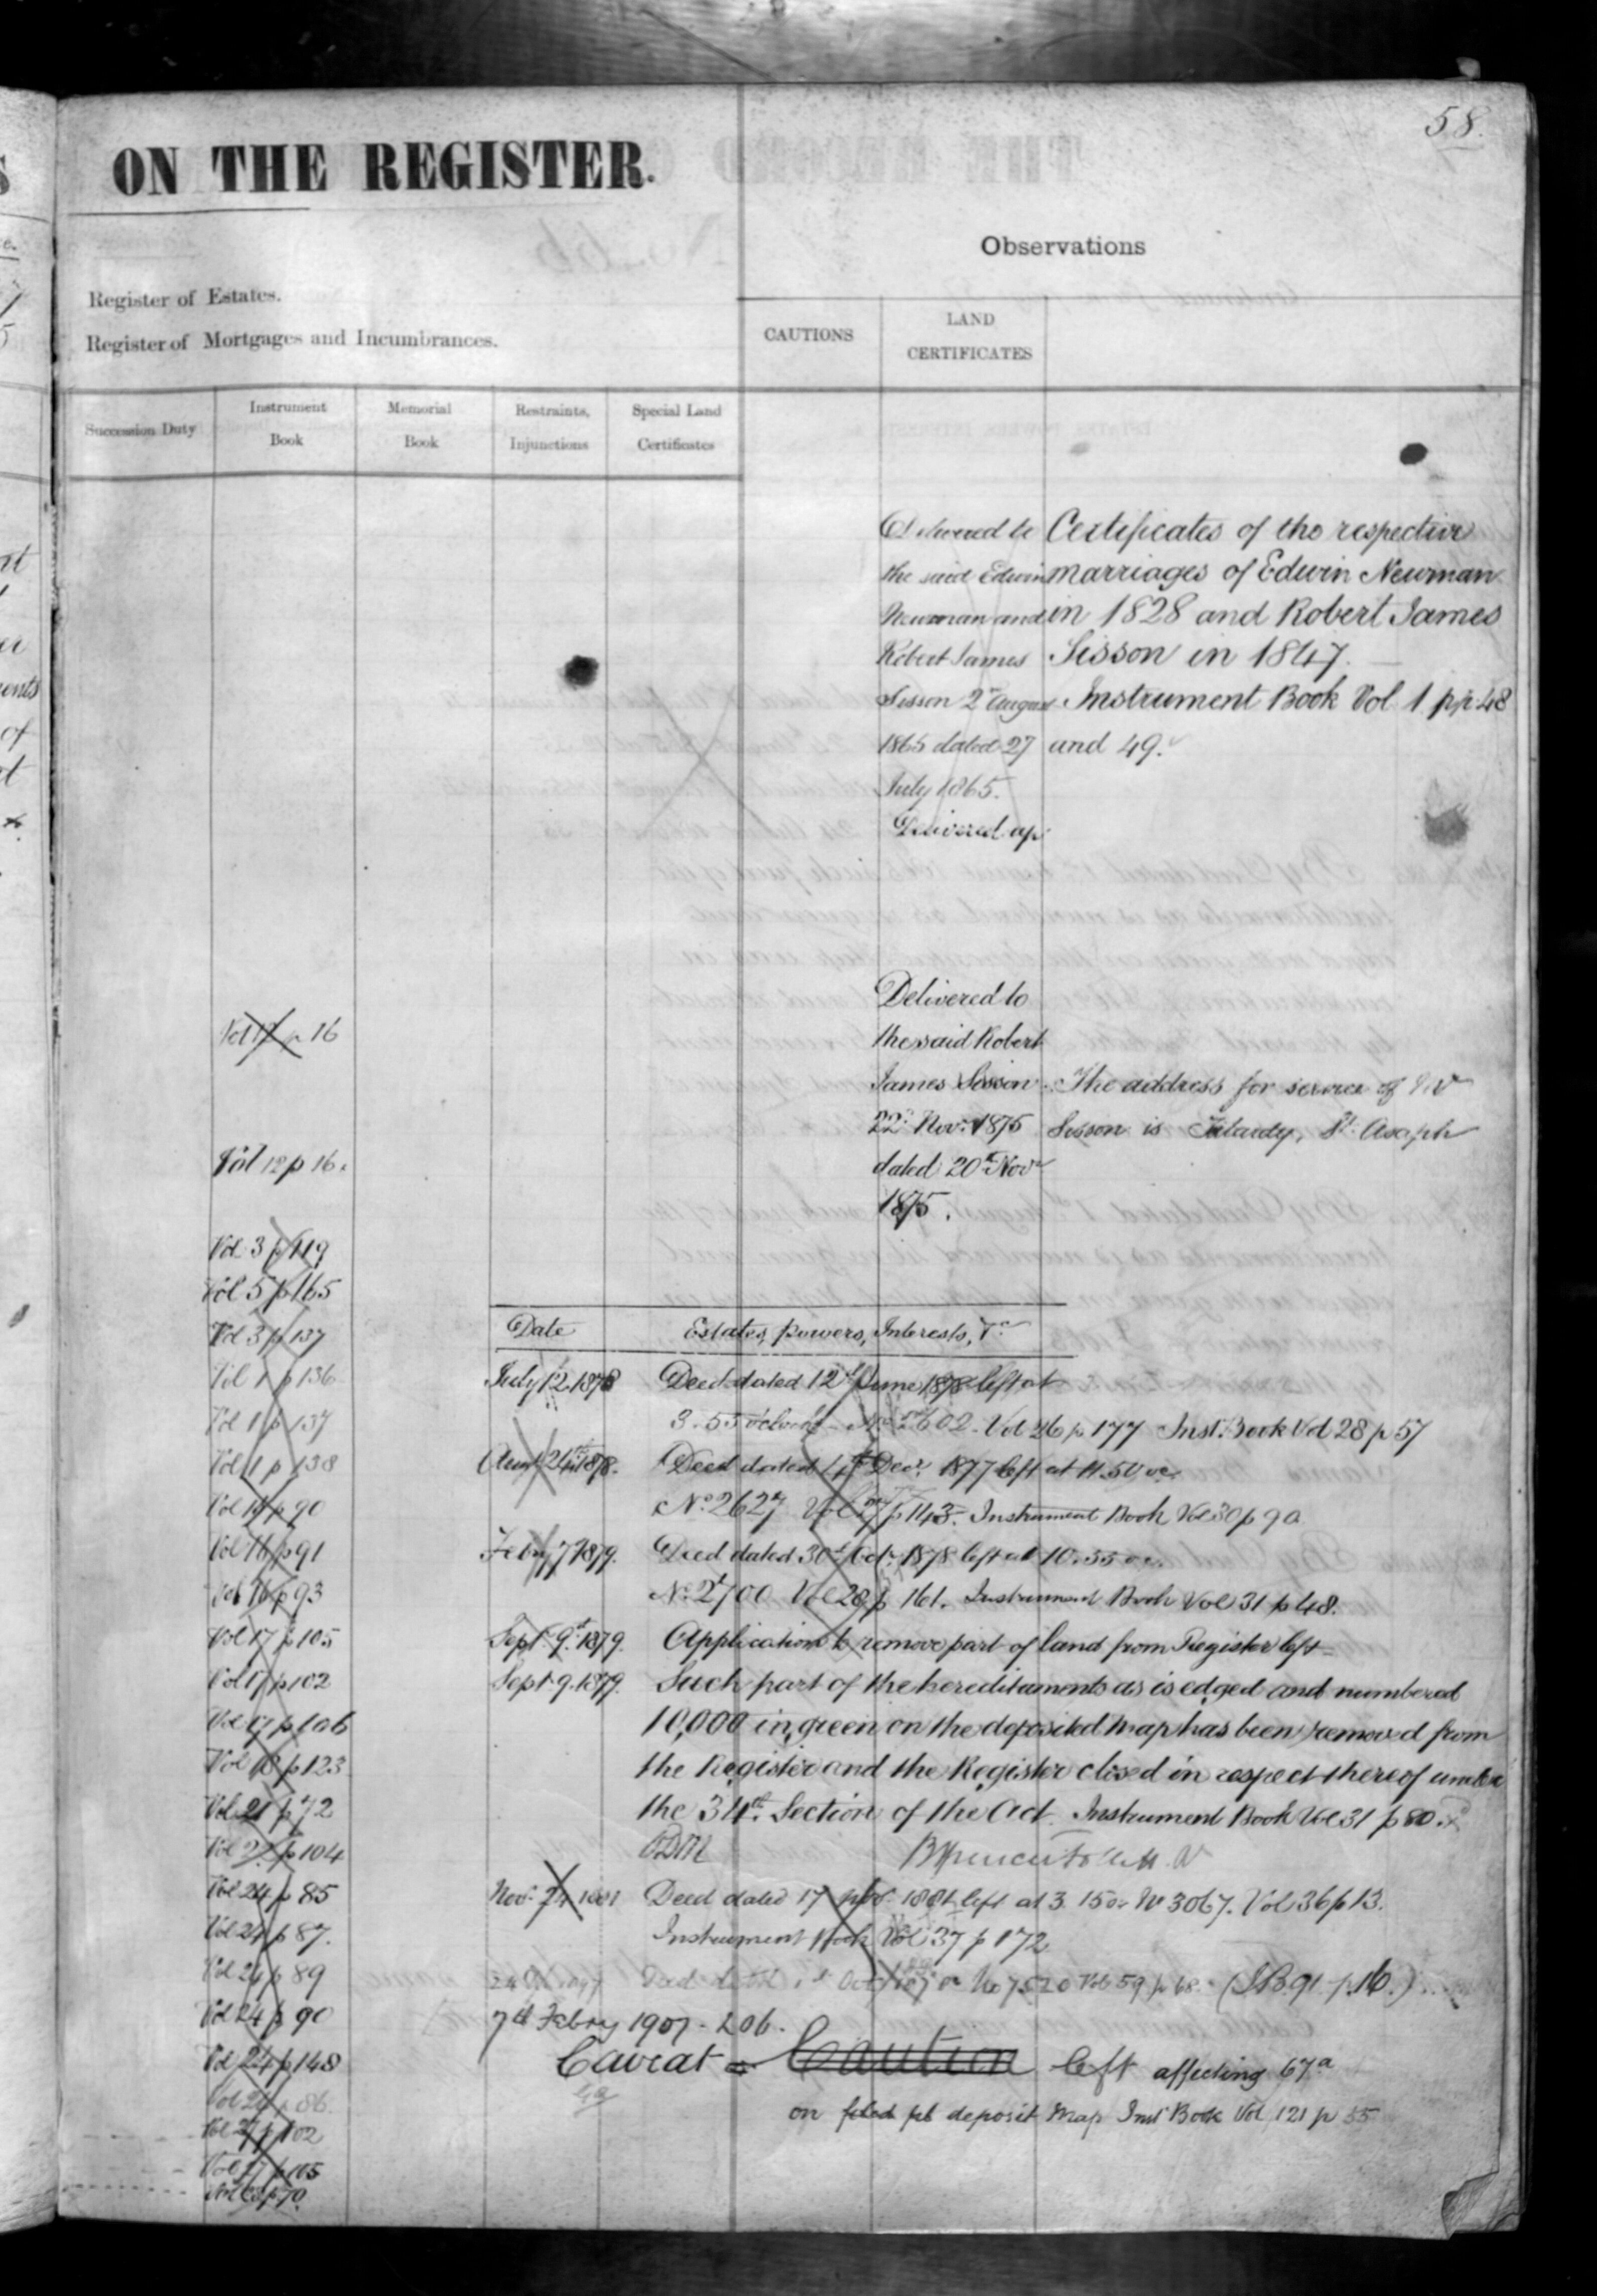 58.
ON THE REGISTER.
Observations
Register of Estates.
Register of Mortgages and Incumbrances.
CAUTIONS
LAND
CERTIFICATES
Succession Duty
Instrument
Book
Memorial
Book
Restraints,
Injunctions
Special Land
Certificates
Delivered to
the said Edwin
Newman and
Robert James
Sisson 2nd August
1865 dated 27
July 1865.
Delivered up
Certificates of the respective
marriages of Edwin Newman
in 1828 and Robert James
Sisson in 1847.
Instrument Book Vol 1 pp 48
and 49.
Delivered to
the said Robert
James Sisson
22nd Novr 1875
dated 20th Novr
1875.
The address for service of Mr
Sisson is Talardy, St. Asaph
Vol 12 p 16
Vol 12 p 16.
Vol 3 p 119
Vol 5 p 165
Vol 3 p 137
Vol 1 p 136
Vol 1 p 137
Vol 1 p 138
Vol 16 p 90
Vol 16 p 91
Vol 16 p 93
Vol 17 p 105
Vol 17 p 102
Vol 17 p 106
Vol 18 p 123
Vol 21 p 72
Vol p 104
Vol 24 p 85
Vol 24 p 87.
Vol 24 p 89
Vol 24 p 90
Vol 24 p 148
Vol 24 p 86.
Vol 27 p 102
Vol 27 p 105
p 70
Date
Estates, powers, Interests, &c
July 12 1878
Deed dated 12th June 1878 left at
3.55 o'clock No 2602. Vol 26 p 177 Inst. Book Vol 28 p 57
Augt 24th 1878.
Deed dated Decr 1877 left at 11.50 oc.
No. 2627 Vol 27 p 143. Instrument Book Vol 30 p 90
Febry 7 1879.
Deed dated 30th Octr 1878 left at 10.55 oc.
No. 2700 Vol 28 p 161. Instrument Book Vol 31 p 48.
Sept. 9th 1879.
Application to remove part of land from Register left
Sept. 9. 1879.
Such part of the hereditaments as is edged and numbered
10,000 in green on the deposited map has been removed from
the Register and the Register closed in respect thereof under
the 34th Section of the Act. Instrument Book Vol 31 p 80.
Novr 24 1881
Deed dated 17 Novr 1881 left at 3.15 oc No 3067. Vol 36 p 13.
Instrument Book Vol 37 p 172
Deed dated No 7520 Vol 59 p 68. (I.B. 91 p. 16.)
7th Febry 1907 - 206.
Caveat Caution left affecting 67a
on deposit Map Inst Book Vol 121 p 55